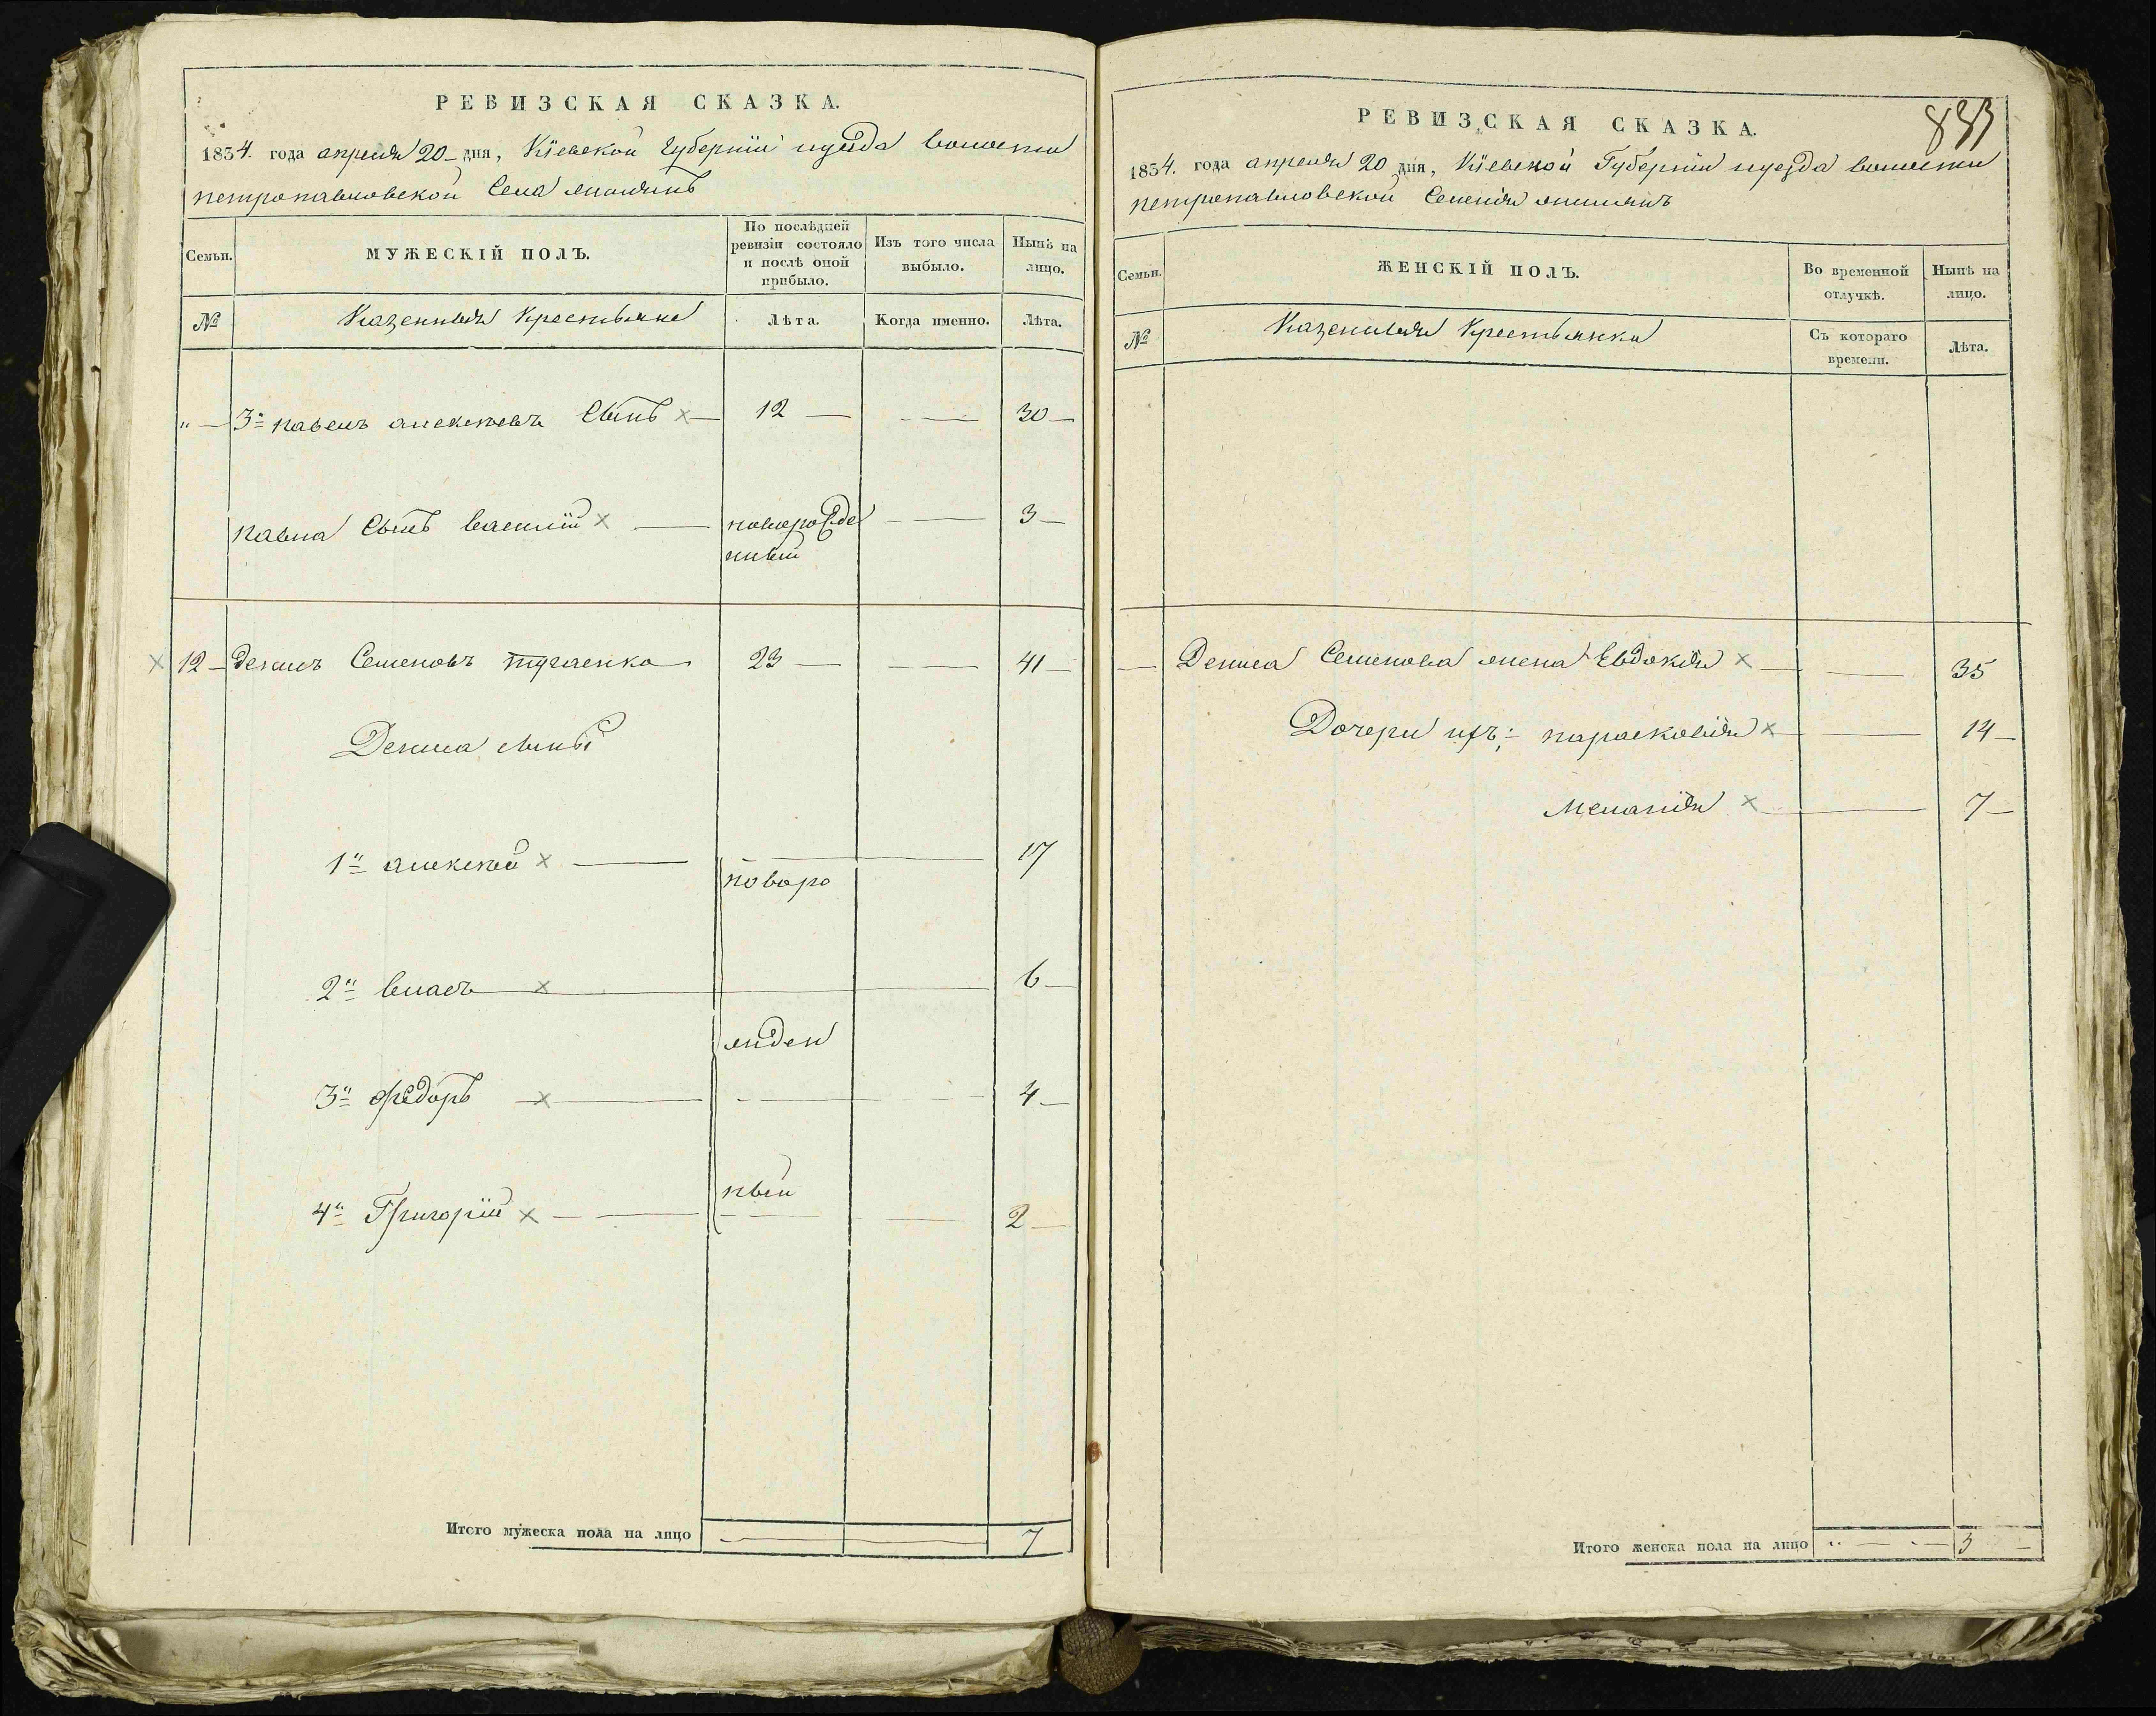 РЕВИЗСКАЯ СКАЗКА.
1834. года апреля 20 дня, Кіевской Губерніи иуѣзда волости
петропавловской Села
Семьи.
МУЖЕСКІЙ ПОЛЪ.
По послѣдней ревизіи состояло и послѣ оной прибыло.
Изъ того числа выбыло.
Нынѣ на лицо.
№
Казенныя Крестьяне
Лѣта.
Когда именно.
Лѣта.
" 3й павелъ алексѣевъ Сынъ × 12 — 30
павла Сынъ василій × новорожде нный — 3
× 12 денисъ Семеновъ 23 — 41
Дениса сыны
1й алексѣй × 17
новоро
2й власъ × 6
жден
3й Федоръ × 4
ный
4й Григорій × 2
Итого мужеска пола на лицо — 7
833
РЕВИЗСКАЯ СКАЗКА.
1834. года апреля 20 дня, Кіевской Губерніи иуезда волости
петропавловской Селенія
Семьи.
ЖЕНСКІЙ ПОЛЪ.
Во временной отлучкѣ.
Нынѣ на лицо.
№
Казенныя Крестьянки
Съ котораго времени.
Лѣта.
— Дениса Семенова жена Евдокія × — 35
Дочери ихъ: парасковія × — 14
Меланія × — 7
Итого женска пола на лицо " — " — 3